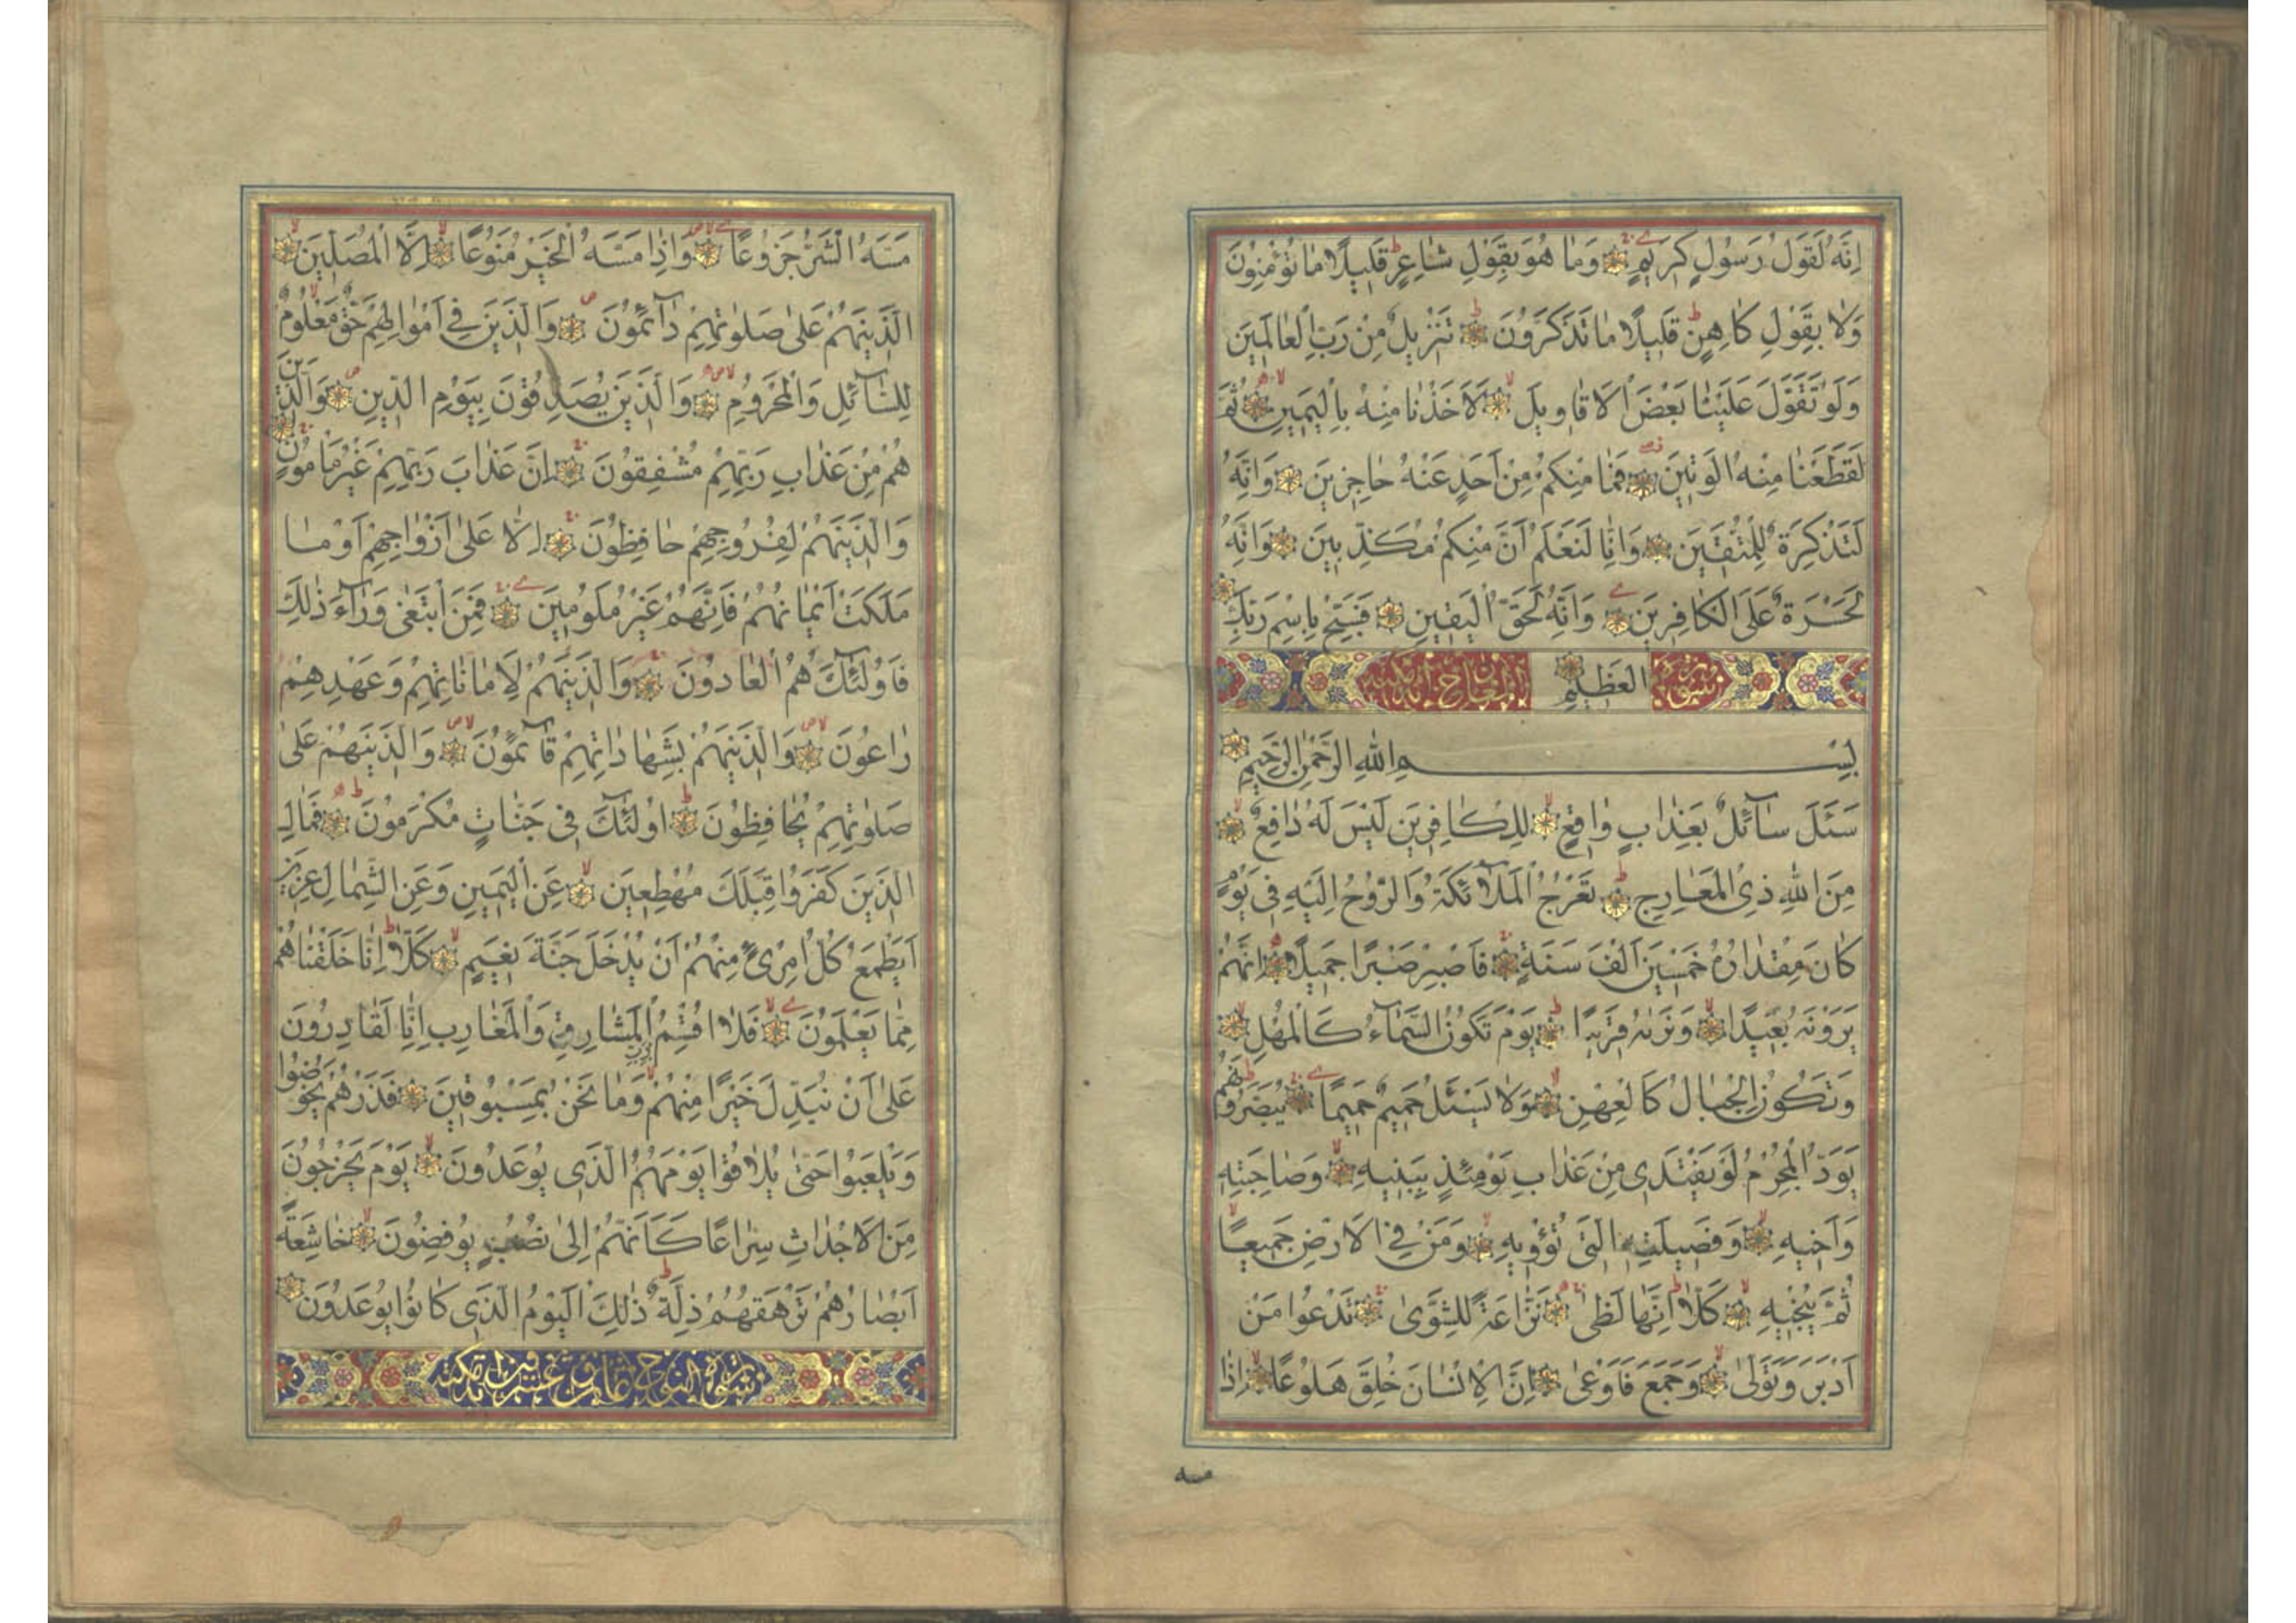 اِنَّهُ لَقَوْلُ رَسُولٍ كَرِيمٍ وَمَا هُوَ بِقَوْلِ شَاعِرٍ قَلِيلًا مَا تُؤْمِنُونَ
وَلَا بِقَوْلِ كَاهِنٍ قَلِيلًا مَا تَذَكَّرُونَ تَنْزِيلٌ مِنْ رَبِّ الْعَالَمِينَ
وَلَوْ تَقَوَّلَ عَلَيْنَا بَعْضَ الْاَقَاوِيلِ لَاَخَذْنَا مِنْهُ بِالْيَمِينِ ثُمَّ
لَقَطَعْنَا مِنْهُ الْوَتِينَ فَمَا مِنْكُمْ مِنْ اَحَدٍ عَنْهُ حَاجِزِينَ وَاِنَّهُ
لَتَذْكِرَةٌ لِلْمُتَّقِينَ وَاِنَّا لَنَعْلَمُ اَنَّ مِنْكُمْ مُكَذِّبِينَ وَاِنَّهُ
لَحَسْرَةٌ عَلَى الْكَافِرِينَ وَاِنَّهُ لَحَقُّ الْيَقِينِ فَسَبِّحْ بِاسْمِ رَبِّكَ
الْعَظِيمِ
بِسْمِ اللهِ الرَّحْمٰنِ الرَّحِيمِ
سَئَلَ سَآئِلٌ بِعَذَابٍ وَاقِعٍ لِلْكَافِرِينَ لَيْسَ لَهُ دَافِعٌ
مِنَ اللهِ ذِى الْمَعَارِجِ تَعْرُجُ الْمَلَآئِكَةُ وَالرُّوحُ اِلَيْهِ فِى يَوْمٍ
كَانَ مِقْدَارُهُ خَمْسِينَ اَلْفَ سَنَةٍ فَاصْبِرْ صَبْرًا جَمِيلًا اِنَّهُمْ
يَرَوْنَهُ بَعِيدًا وَنَرٰيهُ قَرِيبًا يَوْمَ تَكُونُ السَّمَآءُ كَالْمُهْلِ
وَتَكُونُ الْجِبَالُ كَالْعِهْنِ وَلَا يَسْئَلُ حَمِيمٌ حَمِيمًا يُبَصَّرُونَهُمْ
يَوَدُّ الْمُجْرِمُ لَوْ يَفْتَدِى مِنْ عَذَابِ يَوْمِئِذٍ بِبَنِيهِ وَصَاحِبَتِهِ
وَاَخِيهِ وَفَصِيلَتِهِ الَّتِى تُؤْوِيهِ وَمَنْ فِى الْاَرْضِ جَمِيعًا
ثُمَّ يُنْجِيهِ كَلَّا اِنَّهَا لَظٰى نَزَّاعَةً لِلشَّوٰى تَدْعُوا مَنْ
اَدْبَرَ وَتَوَلّٰى وَجَمَعَ فَاَوْعٰى اِنَّ الْاِنْسَانَ خُلِقَ هَلُوعًا اِذَا
مسه
مَسَّهُ الشَّرُّ جَزُوعًا وَاِذَا مَسَّهُ الْخَيْرُ مَنُوعًا اِلَّا الْمُصَلِّينَ
الَّذِينَهُمْ عَلٰى صَلٰوتِهِمْ دَآئِمُونَ وَالَّذِينَ فِى اَمْوَالِهِمْ حَقٌّ مَعْلُومٌ
لِلسَّآئِلِ وَالْمَحْرُومِ وَالَّذِينَ يُصَدِّقُونَ بِيَوْمِ الدِّينِ وَالَّذِينَ
هُمْ مِنْ عَذَابِ رَبِّهِمْ مُشْفِقُونَ اِنَّ عَذَابَ رَبِّهِمْ غَيْرُ مَأْمُونٍ
وَالَّذِينَهُمْ لِفُرُوجِهِمْ حَافِظُونَ اِلَّا عَلٰى اَزْوَاجِهِمْ اَوْ مَا
مَلَكَتْ اَيْمَانُهُمْ فَاِنَّهُمْ غَيْرُ مَلُومِينَ فَمَنِ ابْتَغٰى وَرَآءَ ذٰلِكَ
فَاُولٰٓئِكَ هُمُ الْعَادُونَ وَالَّذِينَهُمْ لِاَمَانَاتِهِمْ وَعَهْدِهِمْ
رَاعُونَ وَالَّذِينَهُمْ بِشَهَادَاتِهِمْ قَآئِمُونَ وَالَّذِينَهُمْ عَلٰى
صَلٰوتِهِمْ يُحَافِظُونَ اُولٰٓئِكَ فِى جَنَّاتٍ مُكْرَمُونَ فَمَالِ
الَّذِينَ كَفَرُوا قِبَلَكَ مُهْطِعِينَ عَنِ الْيَمِينِ وَعَنِ الشِّمَالِ عِزِينَ
اَيَطْمَعُ كُلُّ امْرِئٍ مِنْهُمْ اَنْ يُدْخَلَ جَنَّةَ نَعِيمٍ كَلَّا اِنَّا خَلَقْنَاهُمْ
مِمَّا يَعْلَمُونَ فَلَا اُقْسِمُ بِرَبِّ الْمَشَارِقِ وَالْمَغَارِبِ اِنَّا لَقَادِرُونَ
عَلٰى اَنْ نُبَدِّلَ خَيْرًا مِنْهُمْ وَمَا نَحْنُ بِمَسْبُوقِينَ فَذَرْهُمْ يَخُوضُوا
وَيَلْعَبُوا حَتّٰى يُلَاقُوا يَوْمَهُمُ الَّذِى يُوعَدُونَ يَوْمَ يَخْرُجُونَ
مِنَ الْاَجْدَاثِ سِرَاعًا كَاَنَّهُمْ اِلٰى نُصُبٍ يُوفِضُونَ خَاشِعَةً
اَبْصَارُهُمْ تَرْهَقُهُمْ ذِلَّةٌ ذٰلِكَ الْيَوْمُ الَّذِى كَانُوا يُوعَدُونَ
سورة النوح ثمان وعشرون اية مكية